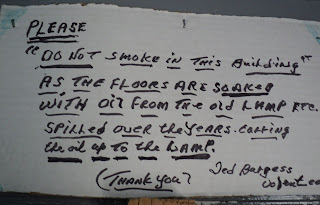 PLEASE
"DO NOT SMOKE in This Building"
AS THE FLOORS ARE SOAKED
WITH OIL FROM The old LAMP ETC.
SPILLED OVER the YEARS. CARRING
the oil up to the LAMP.
(THANK YOU)
Ted Burgess